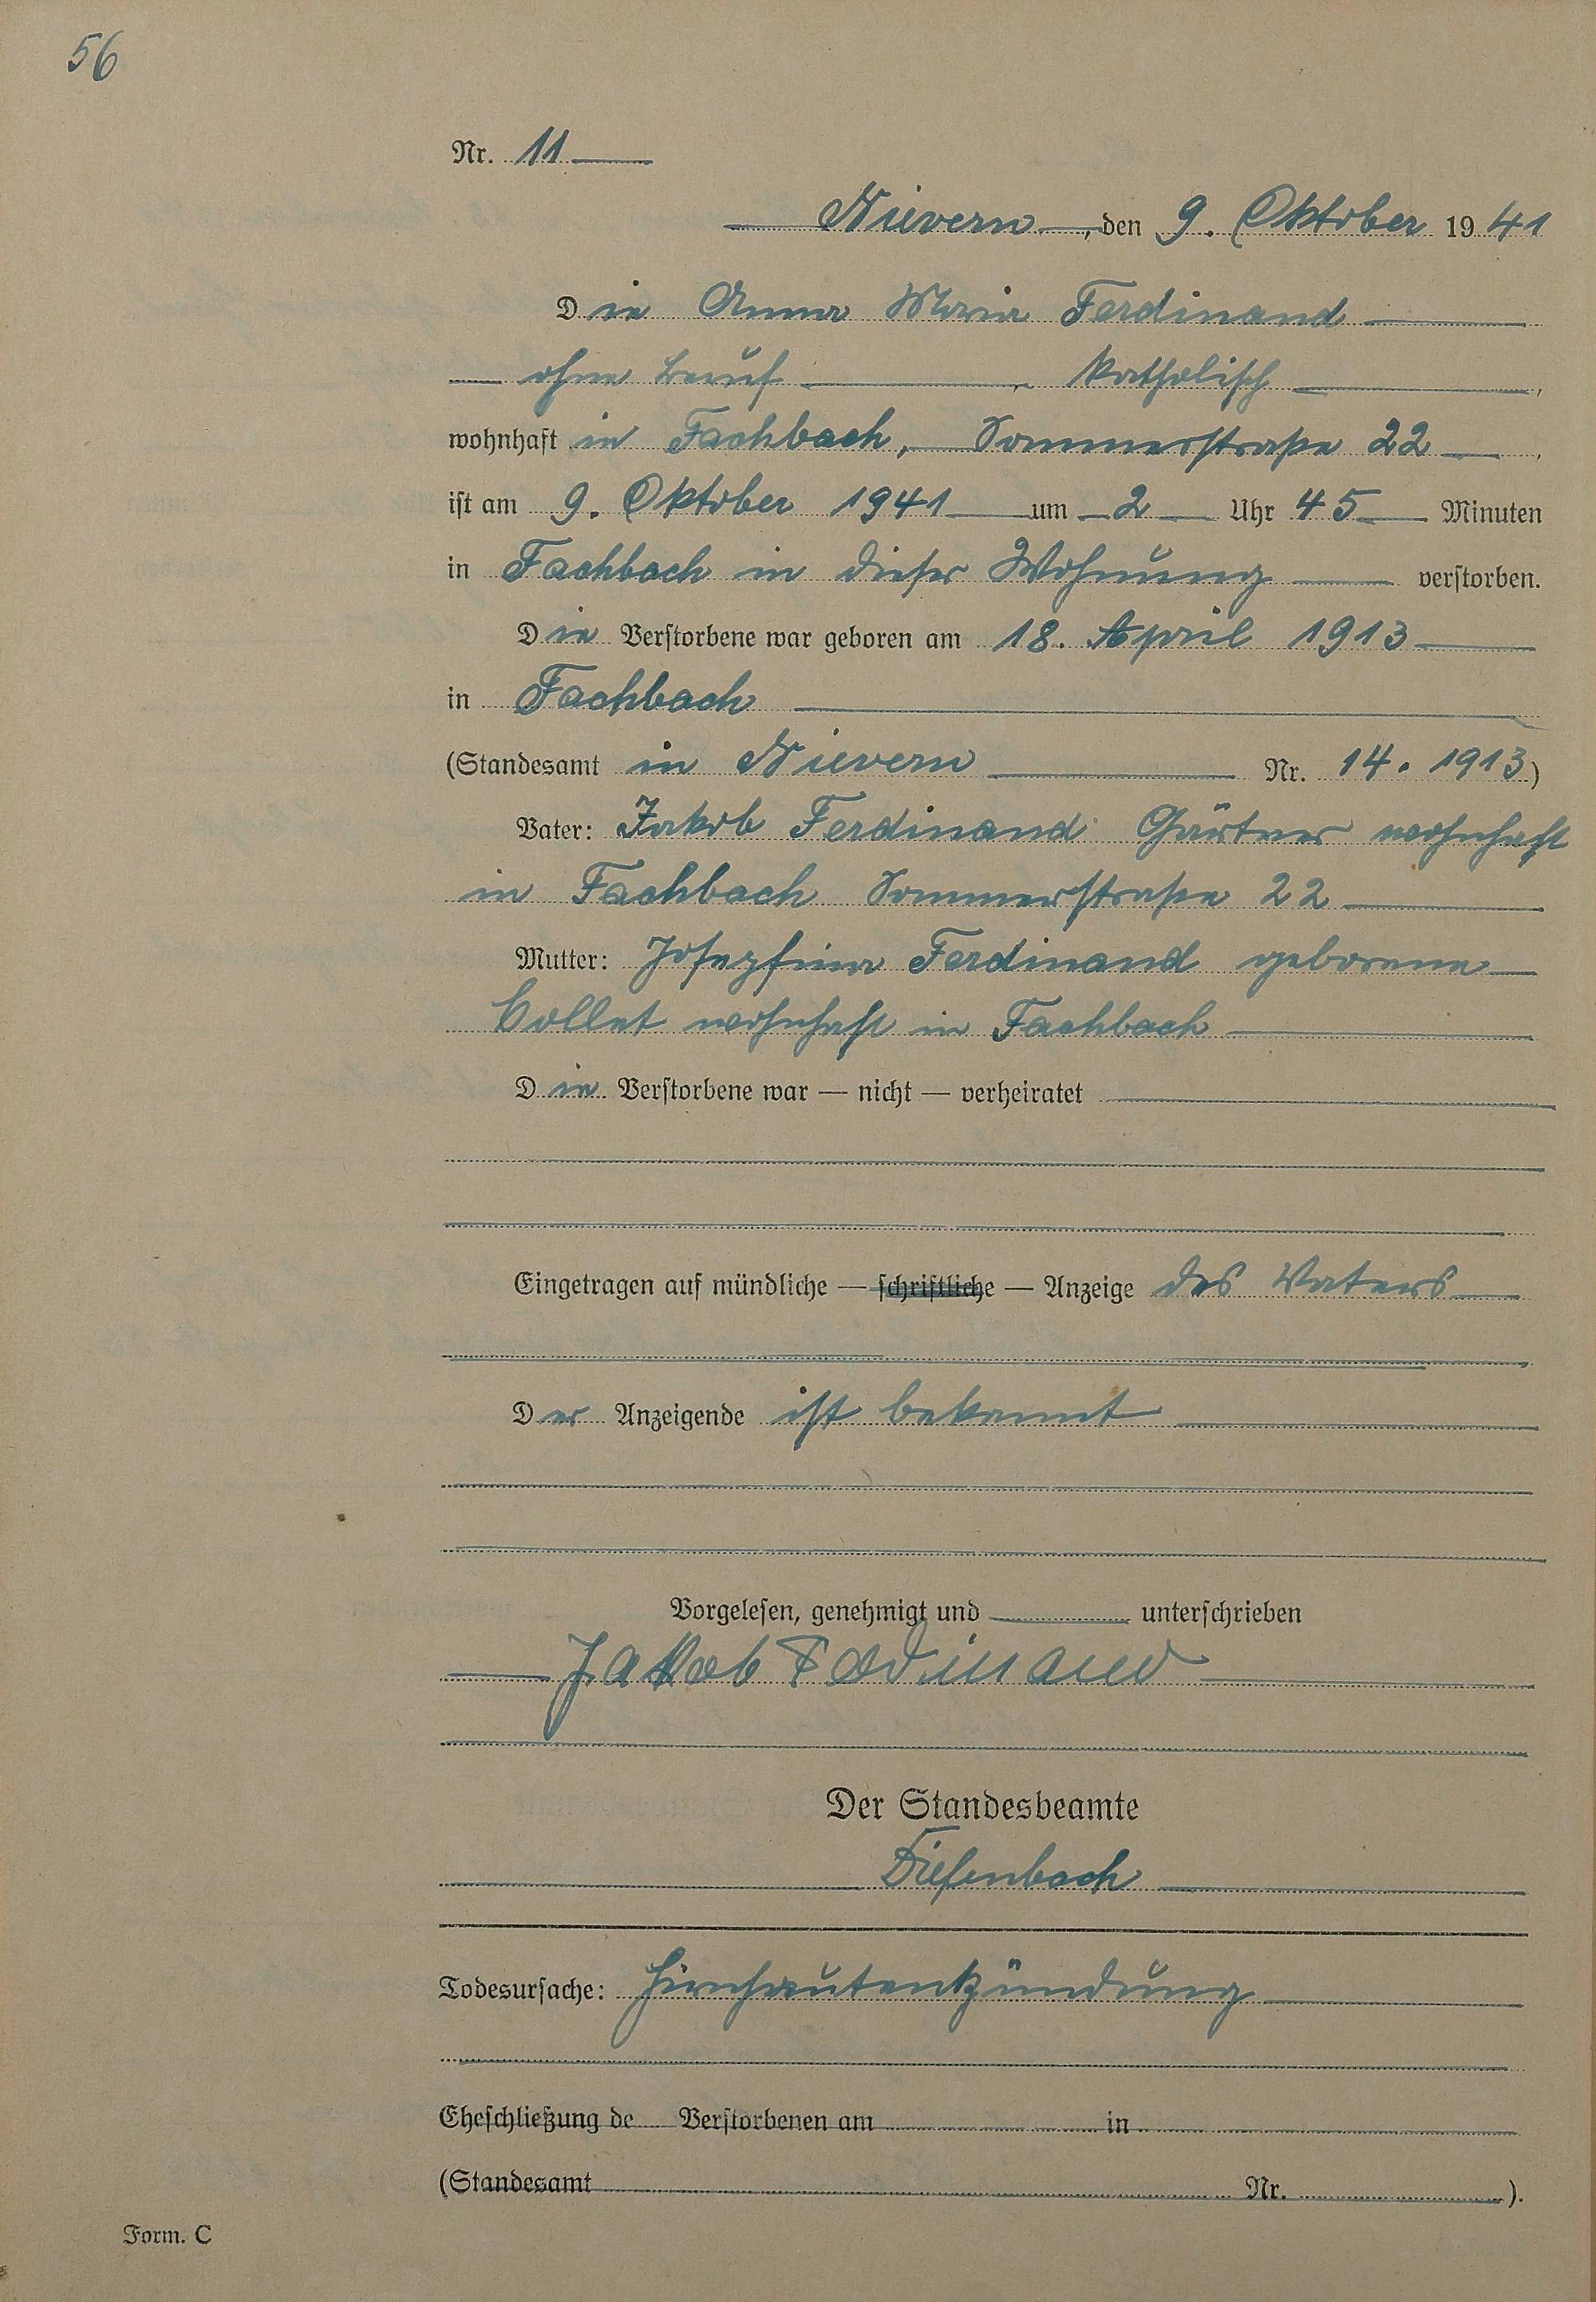 56
Nr. 11
Nievern, den 9. Oktober 1941
Die Anna Maria Ferdinand
ohne Beruf, katholisch,
wohnhaft in Fachbach, Sommerstraße 22,
ist am 9. Oktober 1941 um 2 Uhr 45 Minuten
in Fachbach in dieser Wohnung verstorben.
Die Verstorbene war geboren am 18. April 1913
in Fachbach
(Standesamt in Nievern Nr. 14. 1913)
Vater: Jakob Ferdinand Gärtner wohnhaft
in Fachbach Sommerstraße 22
Mutter: Josefina Ferdinand geborene
Collet wohnhaft in Fachbach
Die Verstorbene war — nicht — verheiratet
Eingetragen auf mündliche — schriftliche — Anzeige des Vaters
Der Anzeigende ist bekannt
Vorgelesen, genehmigt und unterschrieben
Jakob Ferdinand
Der Standesbeamte
Diefenbach
Todesursache: Hirnhautentzündung
Eheschließung de Verstorbenen am in
(Standesamt Nr. ).
Form. C